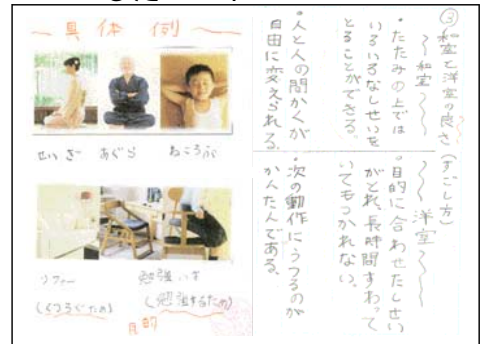 ③和室と洋室の良さ(すごし方)
～～和室～～
・たたみの上では
いろいろなしせいを
とることができる。
・人と人の間かくが
自由に変えられる。
～～洋室～～
・目的に合わせたしせい
がとれ、長時間すわって
いてもつかれない。
・次の動作にうつるのが
かんたんである。
～具体例～
せいざ あぐら ねころぶ
ソファー
(くつろぐため)
勉強いす
(勉強するため)
目的